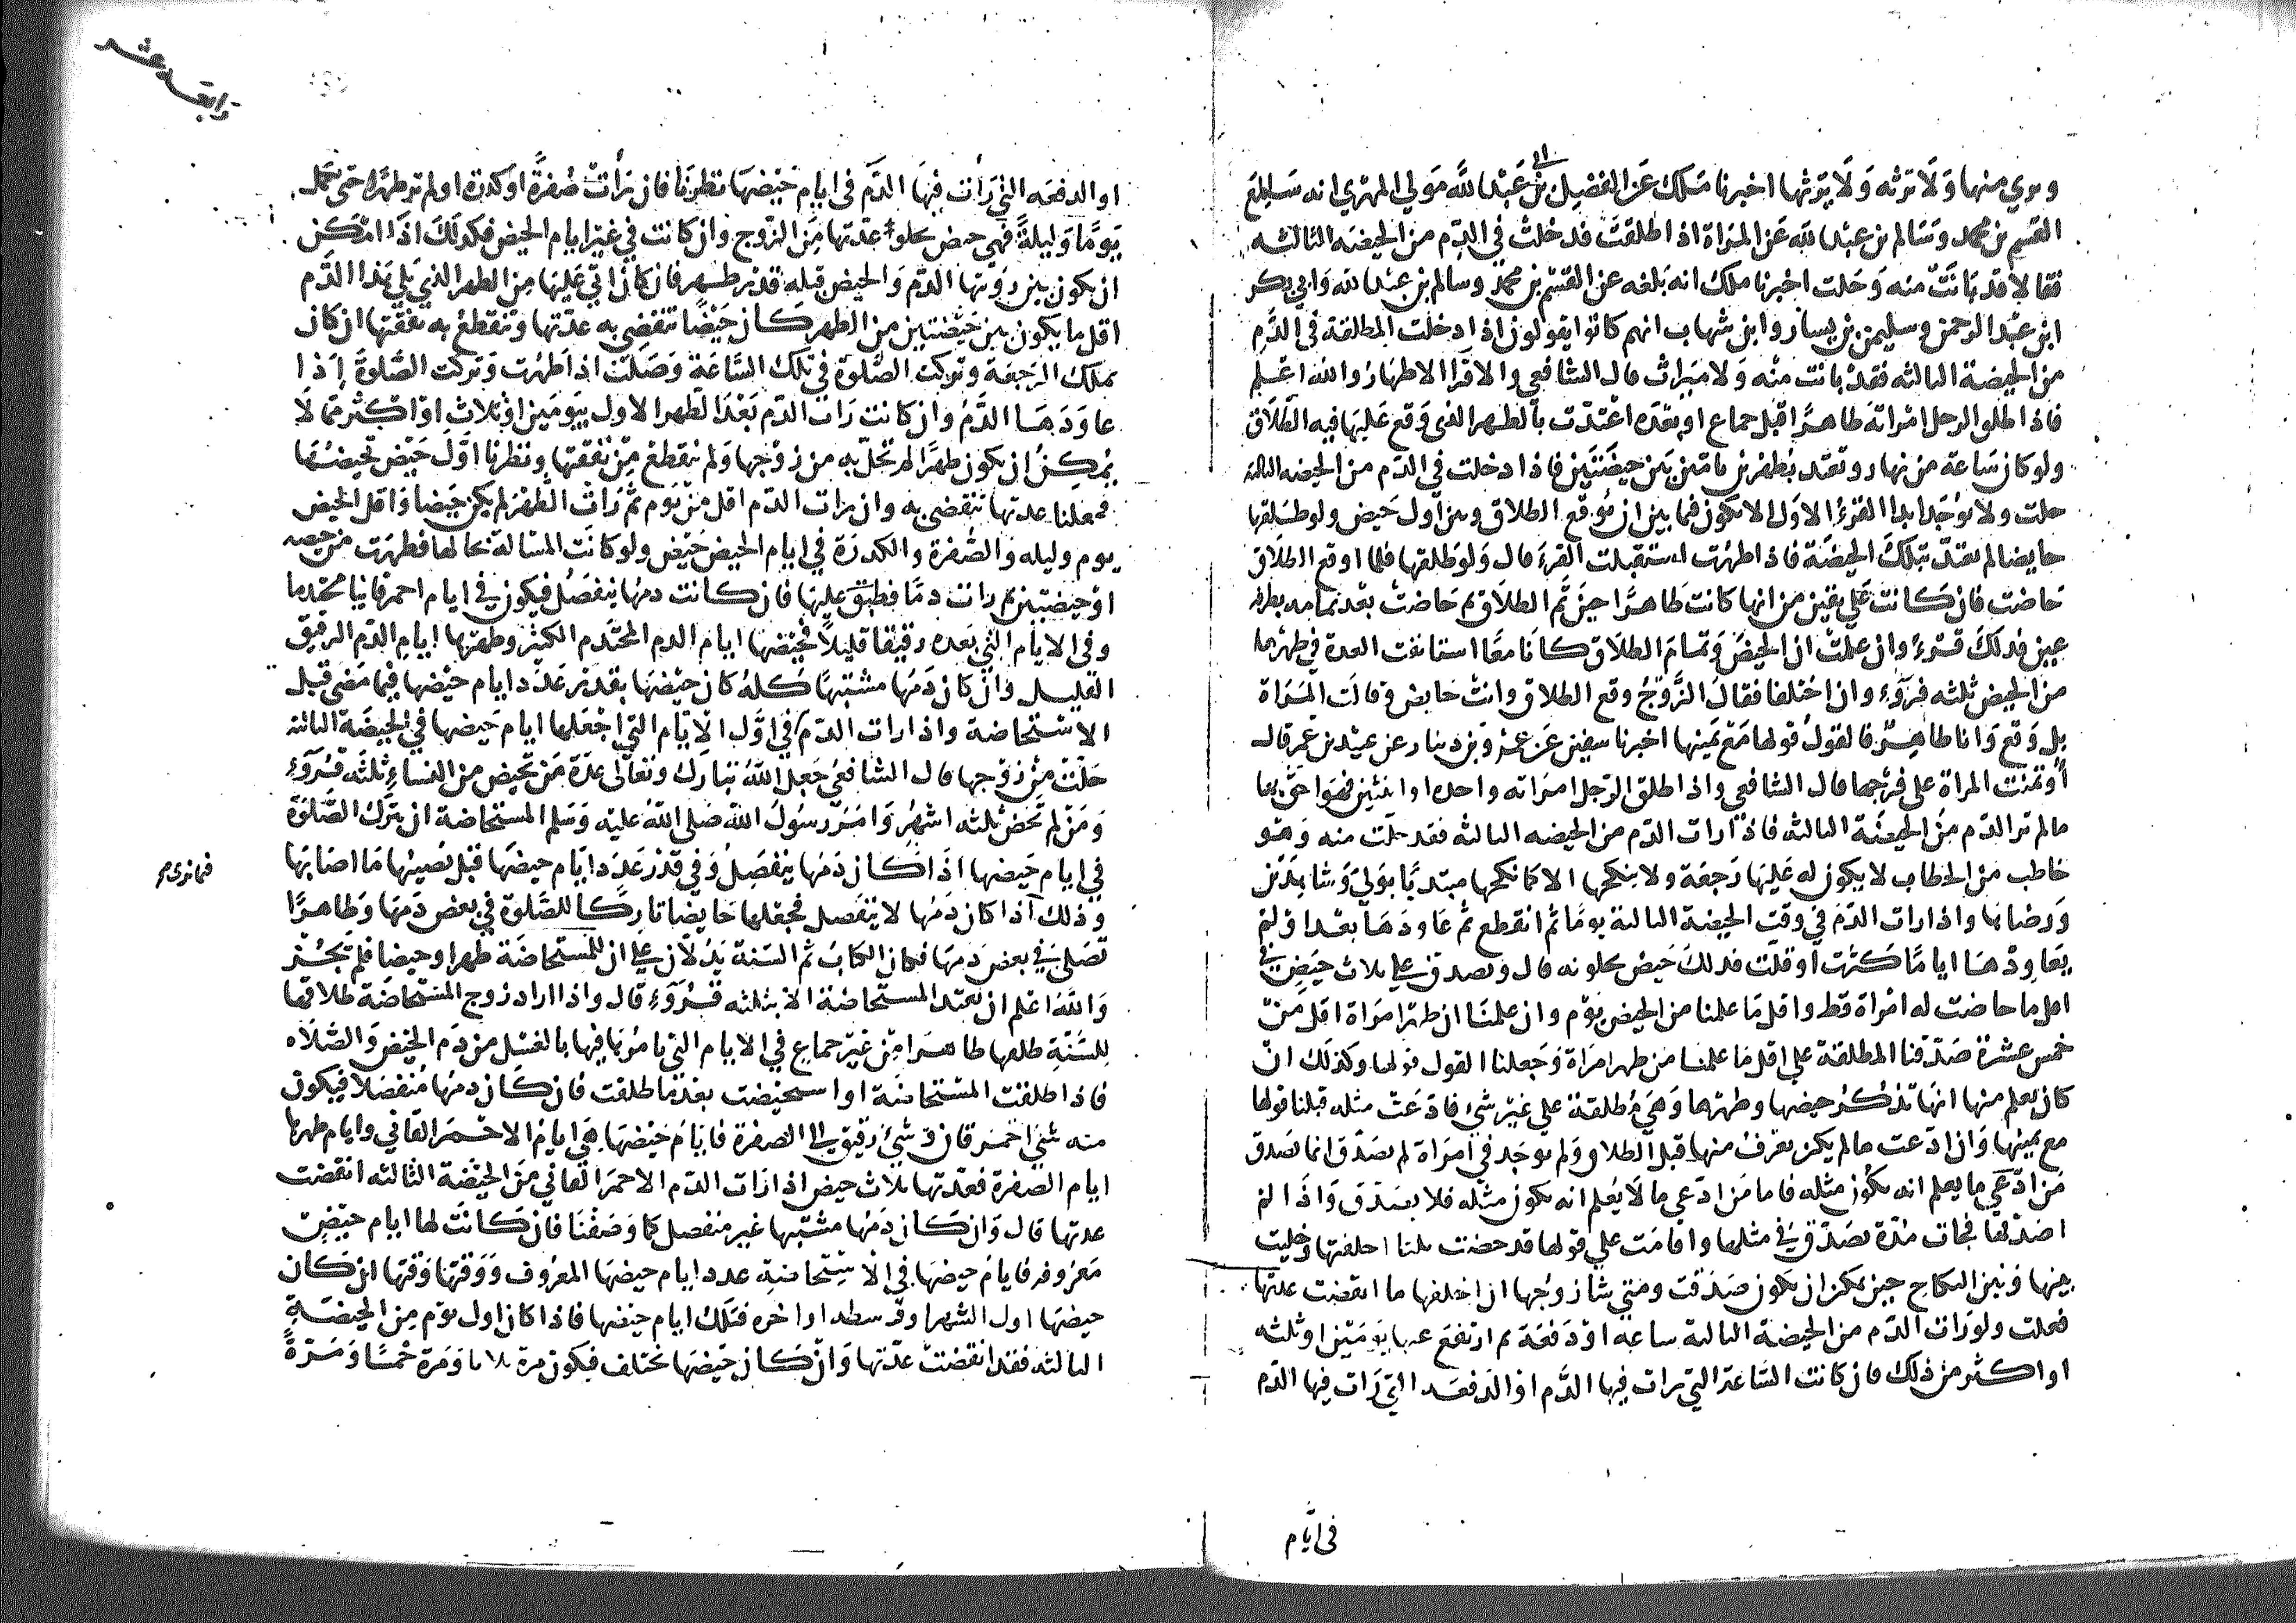 وبري منها ولا ترثه ولا يرثها اخبرنا ملك عن الفضيل بن ابي عبد الله مولي المهري انه سال
القسم بن محمد وسالم بن عبد الله عن المراة اذا طلقت فدخلت في الدم من الحيضه الثالثه
فقالا قد بانت منه وحلت اخبرنا ملك انه بلغه عن القسم بن محمد وسالم بن عبد الله وابي بكر
ابن عبد الرحمن وسليمن بن يسار وابن شهاب انهم كانوا يقولون اذا دخلت المطلقة في الدم
من الحيضة الثالثه فقد بانت منه ولا ميراث قال الشافعي والاقرا الاطهار والله اعلم
فاذا طلق الرجل امراته طاهرا قبل جماع او بعده اعتدت بالطهر الذي وقع عليها فيه الطلاق
ولو كان ساعة من نهار وتعتد بطهرين تامين بين حيضتين فاذا دخلت في الدم من الحيضه الثالثة
حلت ولا يوجد ابدا القرء الاول الا يكون فيما بين ان يوقع الطلاق وبين اول حيض ولو طلقها
حايضا لم تعتد بتلك الحيضة فاذا طهرت استقبلت القرء قال ولو طلقها فلما اوقع الطلاق
حاضت فان كانت علي يقين من انها كانت طاهرا حين تم الطلاق ثم حاضت بعد تمامه بطرفه
عين فذلك قرء وان علمت ان الحيض وتمام الطلاق كانا معا استانفت العدة في طهرها
من الحيض ثلثه قروء وان اختلفا فقال الزوج وقع الطلاق وانت حايض وقالت المراة
بل وقع وانا طاهر فالقول قولها مع يمينها اخبرنا سفين عن عمرو بن دينار عن عبيد بن عمر قال
أوتمنت المراة علي فرجها قال الشافعي واذا طلق الرجل امراته واحدة او اثنتين فهو احق بها
ما لم تر الدم من الحيضة الثالثه فاذا رات الدم من الحيضه الثالثه فقد حلت منه وهو
خاطب من الخطاب لا يكون له عليها رجعة ولا ينكحها الا كما نكحها مبتديا بولي وشاهدين
ورضاها واذا رات الدم في وقت الحيضة الثالثة يوما ثم انقطع ثم عاودها بعد او لم
يعاودها اياما كثرت او قلت فذلك حيض تحلو به قال وتصدق علي ثلاث حيض في
اقل ما حاضت له امراة قط واقل ما علمنا من الحيض يوم وان علمنا ان طهر امراة اقل من
خمس عشرة صدقنا المطلقة علي اقل ما علمنا من طهر امراة وجعلنا القول قولها وكذلك ان
كان يعلم منها انها تذكر حيضها وطهرها وهي مطلقة علي غير شئ فادعت مثله قبلنا قولها
مع يمينها وان ادعت ما لم يكن يعرف منها قبل الطلاق ولم يوجد في امراة لم تصدق انما تصدق
من ادعي ما يعلم انه يكون مثله فاما من ادعي ما لا يعلم انه يكون مثله فلا يصدق واذا لم
اصدقها فجات مدة تصدق في مثلها واقامت علي قولها قد حضت ثلثا احلفتها وخليت
بينها وبين النكاح حين يمكن ان يكون صدقت ومتي شا زوجها ان احلفها ما انقضت عدتها
فعلت ولو رات الدم من الحيضة الثالثة ساعه او دفعة ثم ارتفع عنها يومين او ثلثه
او اكثر من ذلك فان كانت الساعة التي رات فيها الدم او الدفعه التي رات فيها الدم
في ايام
رابعة عشر
او الدفعه التي رات فيها الدم في ايام حيضها نظرنا فان رات صفرة او كدرة او لم تر طهرا حتى تكمل
يوما وليلة فهي حيض تحلو به عدتها من الزوج وان كانت في غير ايام الحيض فكذلك اذا امكن
ان يكون بين رويتها الدم والحيض قبله قدر طهر فان كان اتي عليها من الطهر الذي يلي هذا الدم
اقل ما يكون بين حيضتين من الطهر كان حيضا تنقضي به عدتها وتنقطع به نفقتها ان كان
يملك الرجعة وتركت الصلوة في تلك الساعة وصلت اذا طهرت وتركت الصلوة اذا
عاودها الدم وان كانت رات الدم بعد الطهر الاول بيومين او ثلاث او اكثر مما لا
يمكن ان يكون طهرا لم تحل به من زوجها ولم تنقطع من نفقتها ونظرنا اول حيض تحيضها
فجعلنا عدتها تنقضي به وان رات الدم اقل من يوم ثم رات الطهر لم يكن حيضا واقل الحيض
يوم وليله والصفرة والكدرة في ايام الحيض حيض ولو كانت المسالة بحالها فطهرت من حيضه
او حيضتين ثم رات دما فطبق عليها فان كانت دمها ينفصل فيكون في ايام احمر قانيا محتدما
وفي الايام التي بعده رقيقا قليلا فحيضها ايام الدم المحتدم الكثير وطهرها ايام الدم الرقيق
القليل وان كان دمها مشتبها كله كان حيضها بقدر عدد ايام حيضها فيما مضى قبل
الاستحاضة واذا رات الدم في اول الايام التي اجعلها ايام حيضها في الحيضة الثالثه
حلت من زوجها قال الشافعي جعل الله تبارك وتعالى عدة من تحيض من النساء ثلثه قروء
ومن لم تحض ثلثه اشهر وامر رسول الله صلى الله عليه وسلم المستحاضة ان تترك الصلوة
في ايام حيضها اذا كان دمها ينفصل وفي قدر عدد ايام حيضها قبل يصيبها ما اصابها
فيما نرى صح
وذلك اذا كان دمها لا ينفصل فجعلها حايضا تاركا للصلوة في بعض دمها وطاهرا
تصلي في بعض دمها فكان الكتاب ثم السنة يدلان علي ان للمستحاضة طهرا وحيضا فلم تجز
والله اعلم ان تعتد المستحاضة الا بثلثه قروء قال واذا اراد زوج المستحاضة طلاقها
للسنة طلقها طاهرا من غير جماع في الايام التي نامرها فيها بالغسل من دم الحيض والصلاه
فاذا طلقت المستحاضة او استحيضت بعد ما طلقت فان كان دمها منفصلا فيكون
منه شئ احمر قان وشئ رقيق الى الصفرة فايام حيضها هي ايام الاحمر القاني وايام طهرها
ايام الصفرة فعدتها ثلاث حيض اذا رات الدم الاحمر القاني من الحيضة الثالثه انقضت
عدتها قال وان كان دمها مشتبها غير منفصل كما وصفنا فان كانت لها ايام حيض
معروفه فايام حيضها في الاستحاضة عدد ايام حيضها المعروف ووقتها وقتها ان كان
حيضها اول الشهر او وسطه او اخره فتلك ايام حيضها فاذا كان اول يوم من الحيضة
الثالثه فقد انقضت عدتها وان كان حيضها تختلف فيكون مرة ثلاثا ومرة خمسا ومرة